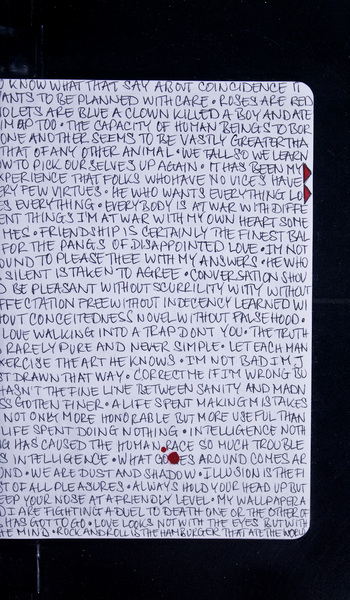 O KNOW WHAT THAT SAY ABOUT COINCIDENCE I
ANTS TO BE PLANNED WITH CARE • ROSES ARE RED
IOLETS ARE BLUE A CLOWN KILLED A BOY AND ATE
IM TOO • THE CAPACITY OF HUMAN BEINGS TO BOR
ONE ANOTHER SEEMS TO BE VASTLY GREATER THA
THAT OF ANY OTHER ANIMAL • WE FALL SO WE LEARN
OW TO PICK OURSELVES UP AGAIN • IT HAS BEEN MY
XPERIENCE THAT FOLKS WHO HAVE NO VICES HAVE
ERY FEW VIRTUES • HE WHO WANTS EVERYTHING LO
ES EVERYTHING • EVERYBODY IS AT WAR WITH DIFFE
ENT THINGS I'M AT WAR WITH MY OWN HEART SOME
MES • FRIENDSHIP IS CERTAINLY THE FINEST BAL
FOR THE PANGS OF DISAPPOINTED LOVE • IM NOT
OUND TO PLEASE THEE WITH MY ANSWERS • HE WHO
SILENT IS TAKEN TO AGREE • CONVERSATION SHOU
D BE PLEASANT WITHOUT SCURRILITY WITTY WITHOUT
FFECTATION FREE WITHOUT INDECENCY LEARNED WI
HOUT CONCEITEDNESS NOVEL WITHOUT FALSEHOOD •
LOVE WALKING INTO A TRAP DONT YOU • THE TRUTH
RARELY PURE AND NEVER SIMPLE • LET EACH MAN
XERCISE THE ART HE KNOWS • I'M NOT BAD I M J
ST DRAWN THAT WAY • CORRECT ME IF I'M WRONG BU
HASN'T THE FINE LINE BETWEEN SANITY AND MADN
SS GOTTEN FINER • A LIFE SPENT MAKING MISTAKES
NOT ONLY MORE HONORABLE BUT MORE USEFUL THAN
LIFE SPENT DOING NOTHING • INTELLIGENCE NOTH
NG HAS CAUSED THE HUMAN RACE SO MUCH TROUBLE
S INTELLIGENCE • WHAT GOES AROUND COMES AR
UND • WE ARE DUST AND SHADOW • ILLUSION IS THE FI
ST OF ALL PLEASURES • ALWAYS HOLD YOUR HEAD UP BUT
EEP YOUR NOSE AT A FRIENDLY LEVEL • MY WALLPAPER A
D I ARE FIGHTING A DUEL TO DEATH ONE OR THE OTHER OF
HAS GOT TO GO • LOVE LOOKS NOT WITH THE EYES BUT WITH
HE MIND • ROCK AND ROLL IS THE HAMBURGER THAT ATE THE WORL